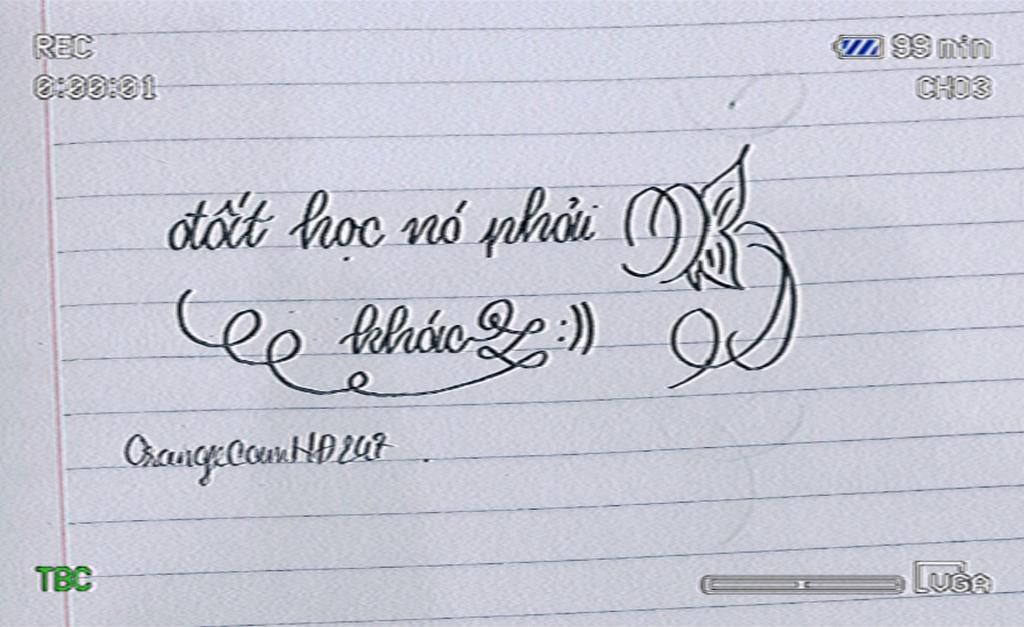 REC
99 min
0:00:01
CH03
đốt học nó phải
khác :))
OrangeCamHD247.
TBC
VGA